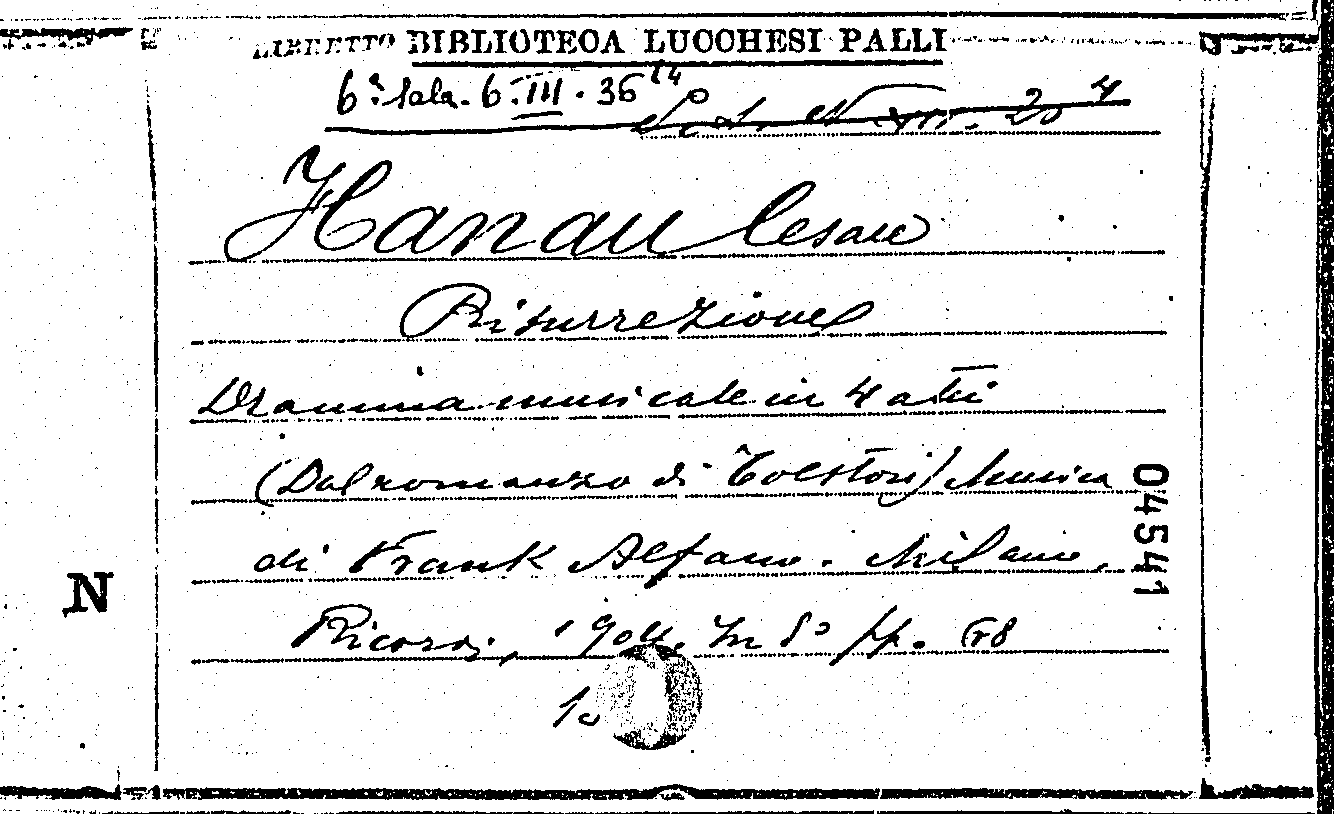 LIBRETTO BIBLIOTECA LUCCHESI PALLI
6ª Sala. 6. III. 36 14
Hanau Cesare
Risurrezione
Dramma musicale in 4 atti
(Dal romanzo di Tolstoi) Musica
di Frank Alfano. Milano,
Ricordi, 1904. In 8º pp. 68
04541
N